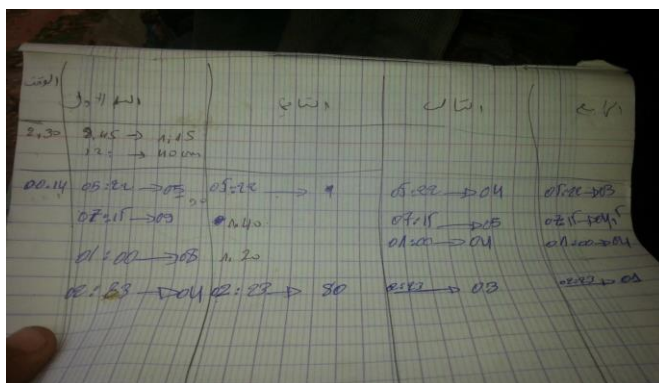 الوقت السد الاول الثاني الثالث الرابع
2.30 9.45 → 1,15
12: → 40 cm
00.14 05:22 → 05 05:22 → 1 05:22 → 04 05:22 → 03
07:15 → 09 1.40 07:15 → 05 07:15 → 04,5
01:00 → 08 1.20 01:00 → 04 01:00 → 04
02:33 → 04 02:23 → 80 02:23 → 03 02:23 → 01